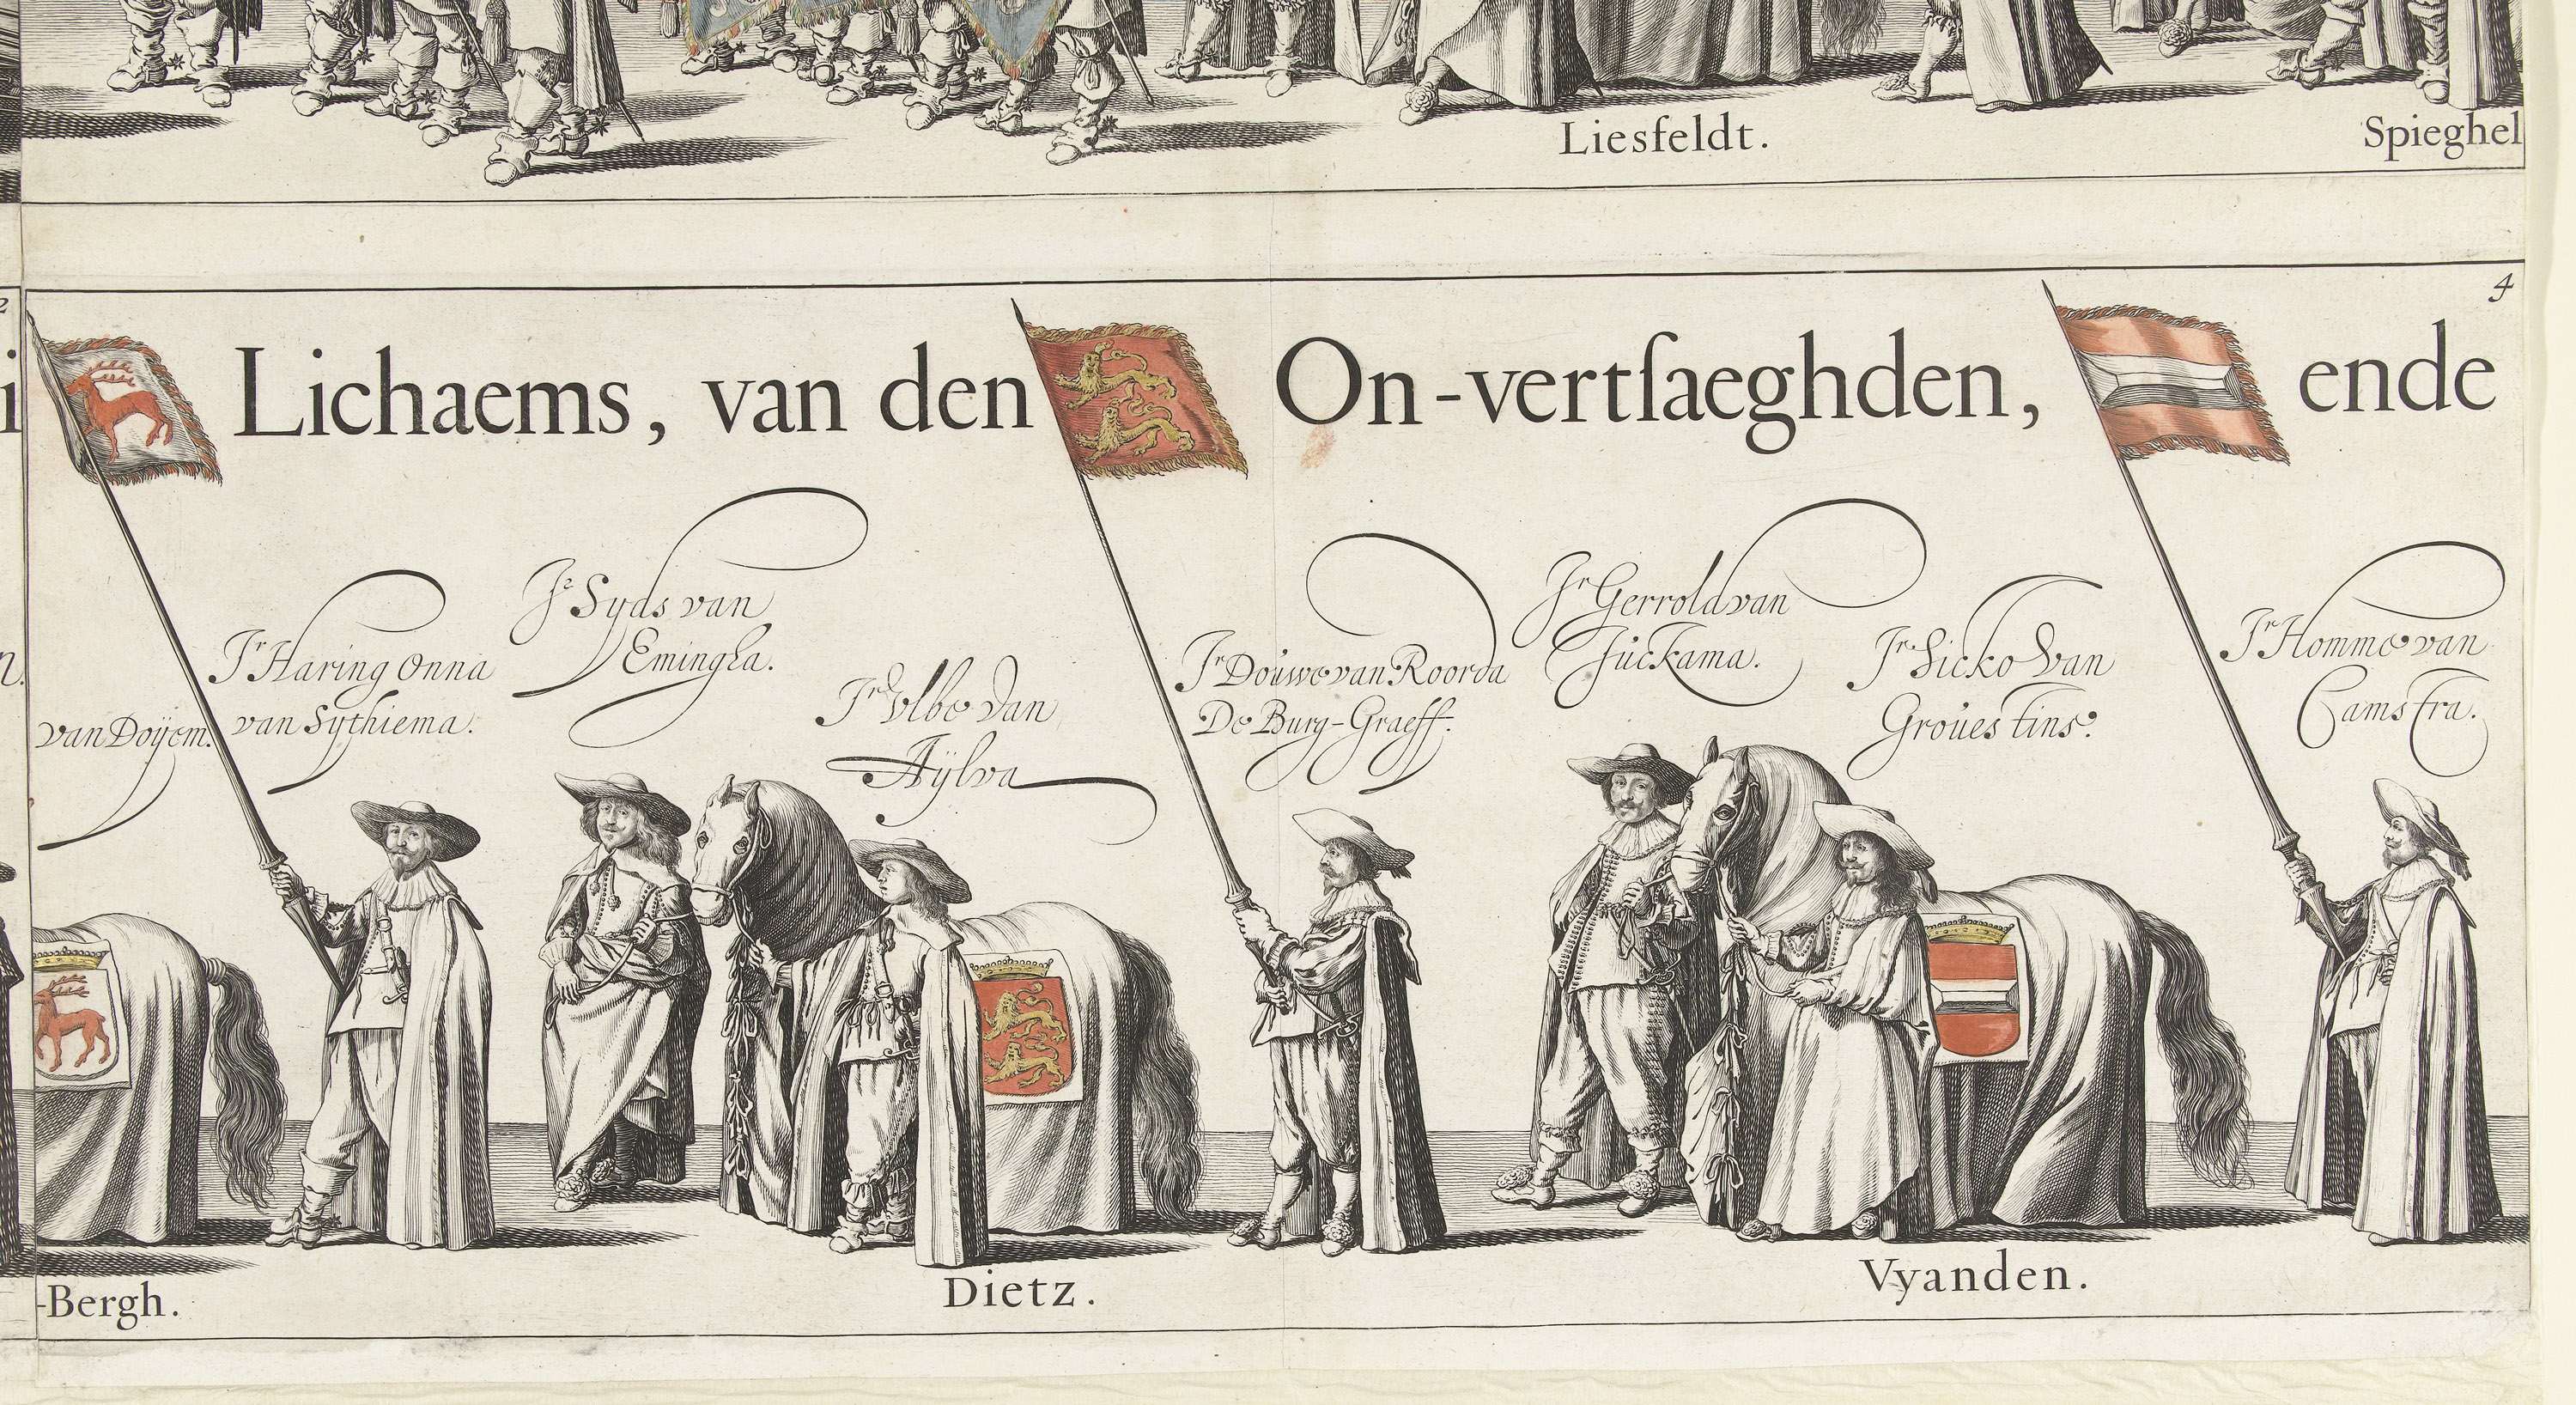 Liesfeldt.
Spieghel
4
Lichaems, van den On-vertſaeghden, ende
van Doÿem.
Jr Haring Onna
van Sythiema.
Jr Syds van
Eminga.
Jr Vlbe Van
Aÿlva
Jr Douwe van Roorda
De Burg-Graeff.
Jr Gerrold van
Juckama.
Jr Sicko Van
Groues tins.
Jr Homme van
Camstra.
-Bergh.
Dietz.
Vyanden.